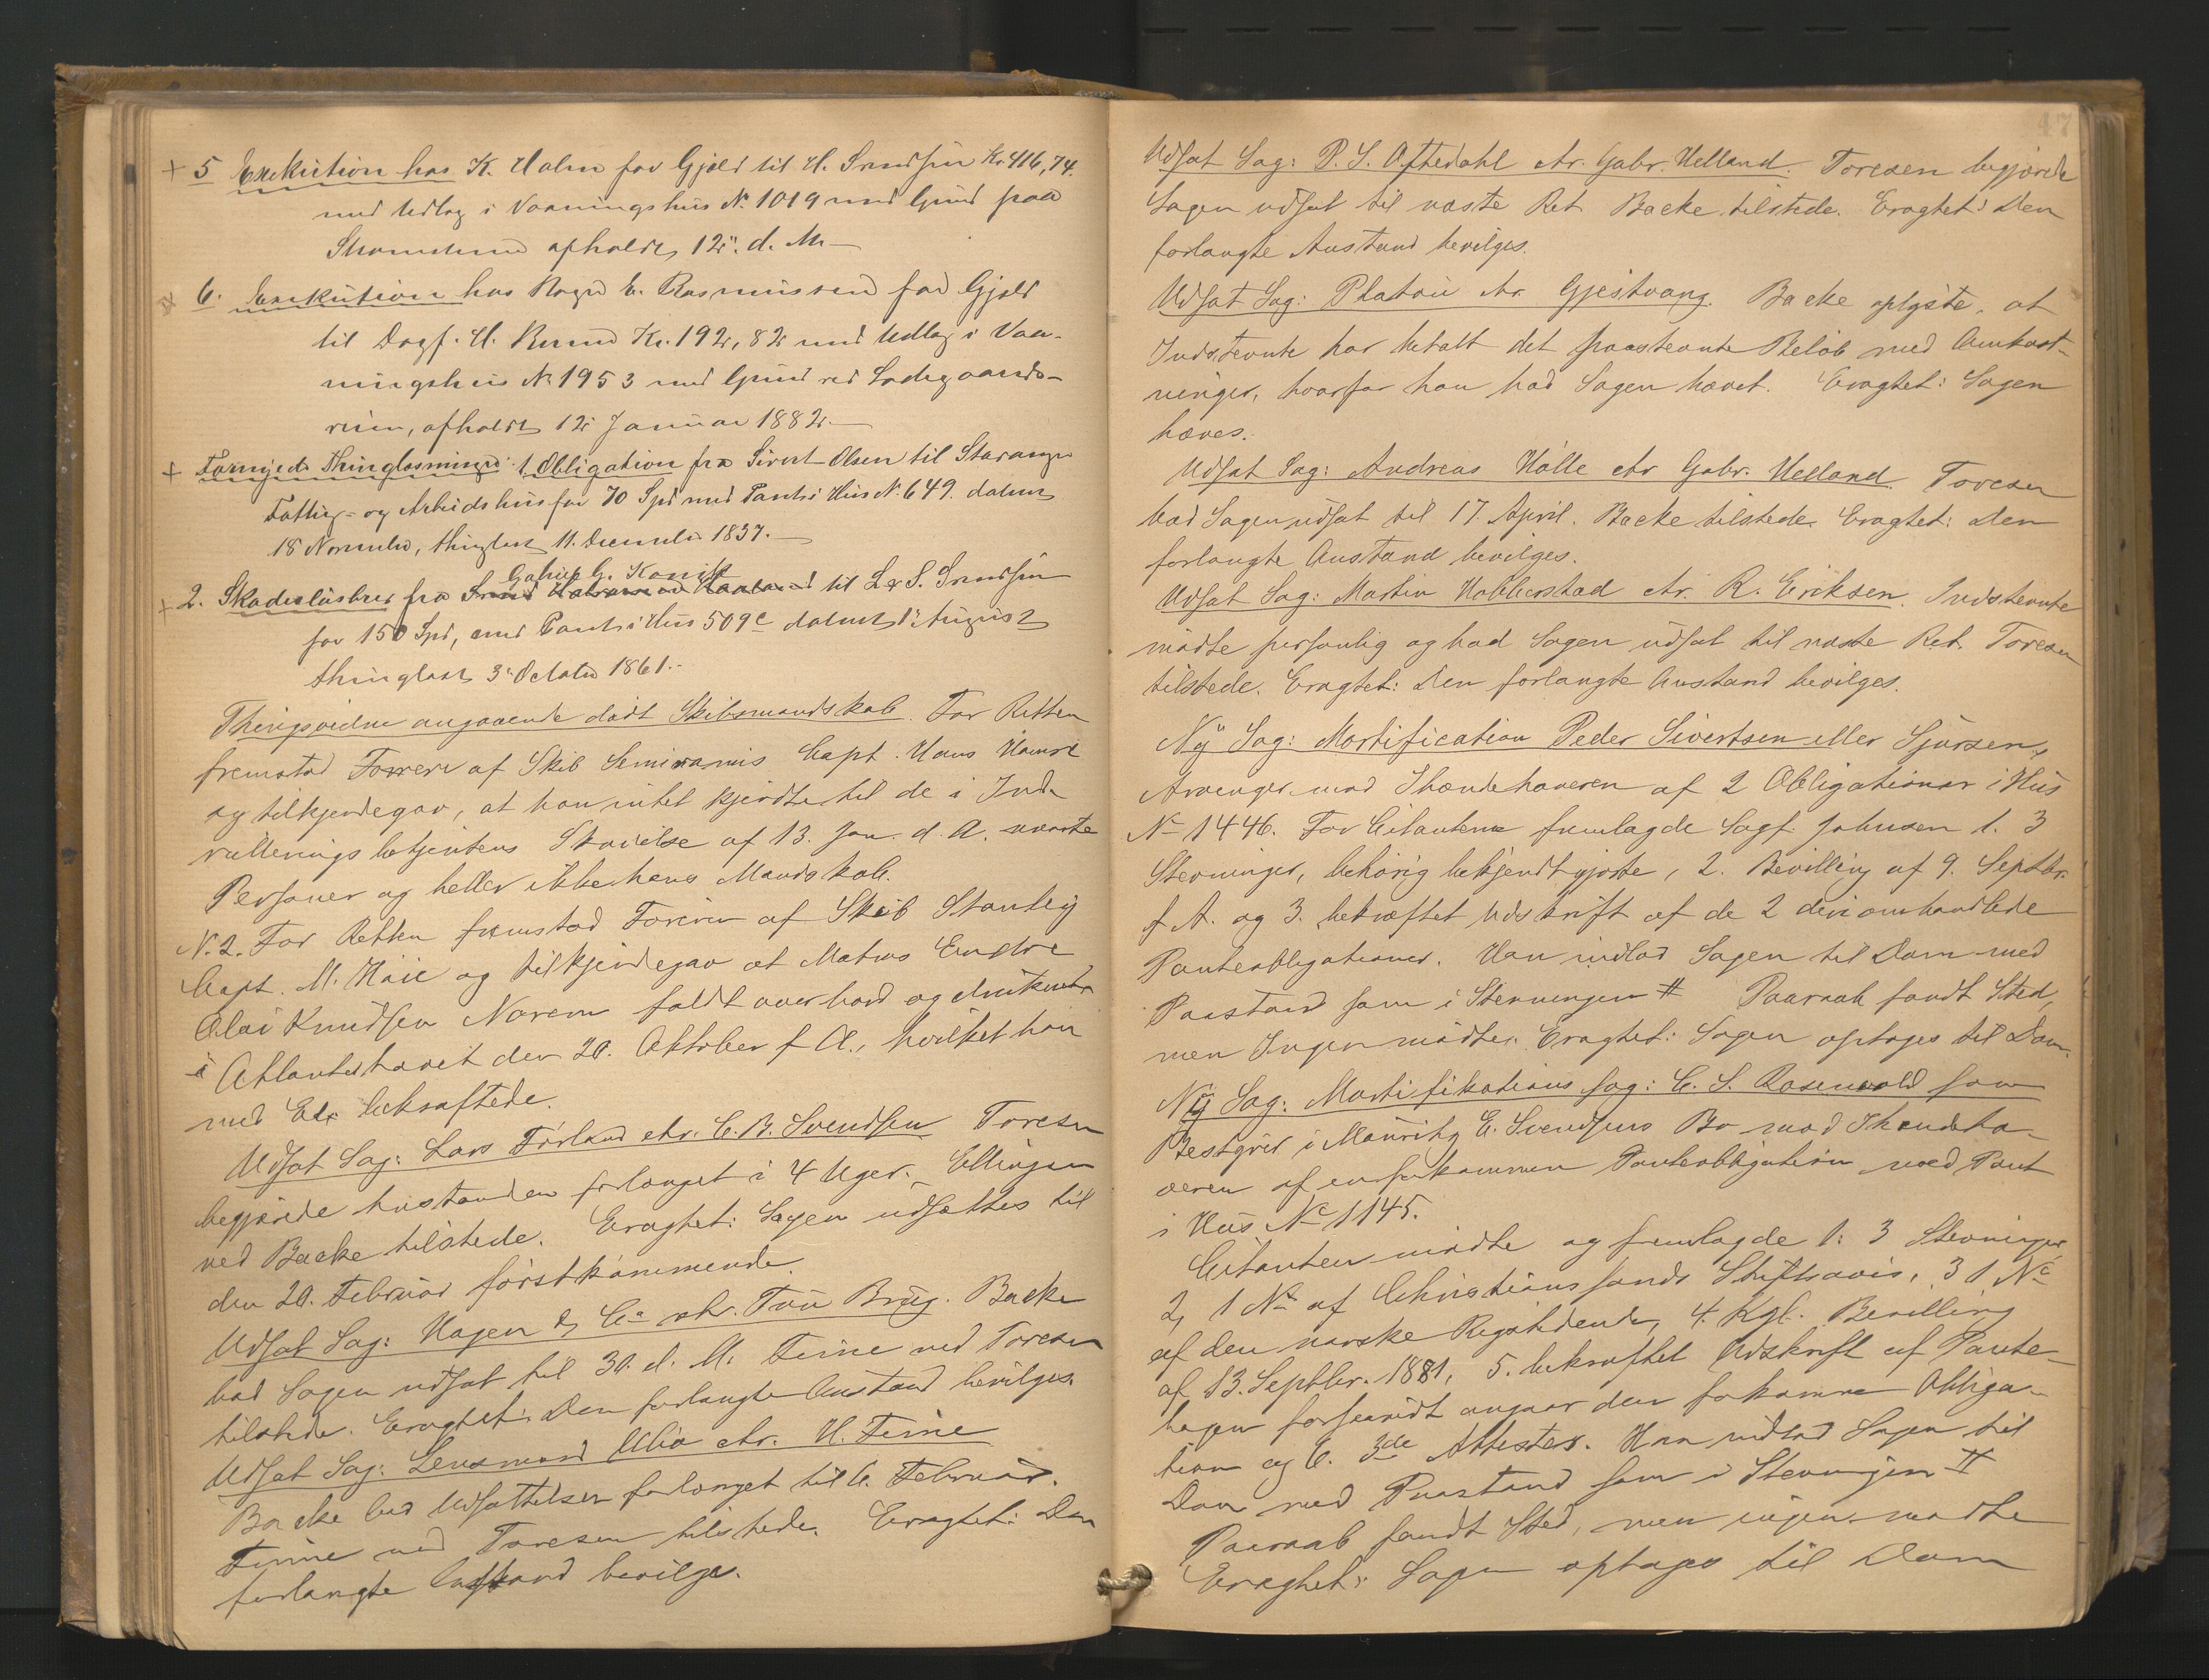 + 5 Exekution hos K. Holm for Gjæld til H. Svendsen Kr. 416,74.
med Udlæg i Vaaningshus No. 1019 med Grund paa
afholdt 12. d. M.
6. Exekution hos E. Rasmussen for Gjæld
til Dagf. H. Kr. 192,82 med Udlæg i Vaa-
ningshus No 1953 med Grund ved Ladegaards-
veien, afholdt 12 Januar 1882.
+ Fornyede Thinglæsninger: 1. Obligation fra Sivert Olsen til Stavanger
Fattig- og Arbeidshus for 70 Spd med Pant i Hus No. 649. dateret
18 November, thinglæst 11. December 1837.
Gabriel G. Kanik
+ 2. Skadesløsbrev fra til L. S. Svendsen
for 150 Spd, med Pant i Hus 509c dateret 1. August
thinglæst 3. October 1861.
Thingsvidne angaaende dødt Skibsmandskab. For Retten
fremstod Føreren af Skib Semiramis Capt. Hans Hamre
og tilkjendegav, at han intet kjendte til de i Ind-
rulleringsbetjentens Skrivelse af 13. Jan. d. A. nævnte
Personer og heller ikke hans Mandskab.
N. 2. For Retten fremstod Føreren af Skib Stanley
Capt. M. Høie og tilkjendegav at Matros Endre
Olai Knudsen Norem faldt overbord og druknede
i Atlanterhavet den 20. Oktober f A., hvilket han
med Ed bekræftede.
Udsat Sag: Lars Førland ctr. C. B. Svendsen Toresen
begjærede Anstanden forlænget i 4 Uger. Ellingsen
ved Backe tilstede. Eragtet: Sagen udsættes til
den 20. Februar førstkommende.
Udsat Sag: Hagen & Co ctr. Tou Brug. Backe
bad Sagen udsat til 30. d. M. Firine ved Toresen
tilstede. Eragtet: Den forlangte Anstand bevilges.
Udsat Sag: Lensmand ctr. H. Firine
Backe bad Udsættelsen forlænget til 6. Februar.
Firine ved Toresen tilstede. Eragtet: Den
forlangte Anstand bevilges.
47
Udsat Sag: P. S. Oftedahl ctr. Gabr. Helland. Toresen begjærede
Sagen udsat til næste Ret. Backe tilstede. Eragtet: Den
forlangte Anstand bevilges.
Udsat Sag: Platou ctr. Gjestvang. Backe oplyste, at
Indstevnte har betalt det paastevnte Beløb med Omkost-
ninger, hvorfor han bad Sagen hævet. Eragtet: Sagen
hæves.
Udsat Sag: Andreas Halle ctr Gabr. Helland. Toresen
bad Sagen udsat til 17. April. Backe tilstede. Eragtet: Den
forlangte Anstand bevilges.
Udsat Sag: Martin Hobberstad ctr. R. Eriksen. Indstevnte
mødte personlig og bad Sagen udsat til næste Ret. Toresen
tilstede. Eragtet: Den forlangte Anstand bevilges.
Ny Sag: Mortification Peder Sivertsen eller Sjursens
Arvinger mod Ihændehaveren af 2 Obligationer i Hus
No 1446. For Citanterne fremlagde Sagf. Johnsen 1. 3
Stevninger, behørig bekjendtgjorte, 2. Bevilling af 9. Septbr.
f A. og 3. bekræftet Udskrift af de 2 deri omhandlede
Panteobligationer. Han indlod Sagen til Dom med
Paastand som i Stevningen # Paaraab fandt Sted,
men Ingen mødte. Eragtet: Sagen optages til Dom.
Ny Sag: Mortifikationssag: C. S. Rosenvold som
Bestyrer i Mauritz E. Svendsens Bo mod Ihændeha-
veren af en forkommen Panteobligation med Pant
i Hus No 1145.
Citanten mødte og fremlagde 1. 3 Stevninger
2, 1 No af Christianssands Stiftsavis, 3 1 No
af den norske Rigstidende, 4. Kgl. Bevilling
af 13. Septbr. 1881, 5. bekræftet Udskrift af Pante-
bogen forsaavidt angaar den forkomne Obliga-
tion og 6. 3de Attester. Han indlod Sagen til
Dom med Paastand som i Stevningen #
Paaraab fandt Sted, men ingen mødte
Eragtet: Sagen optages til Dom